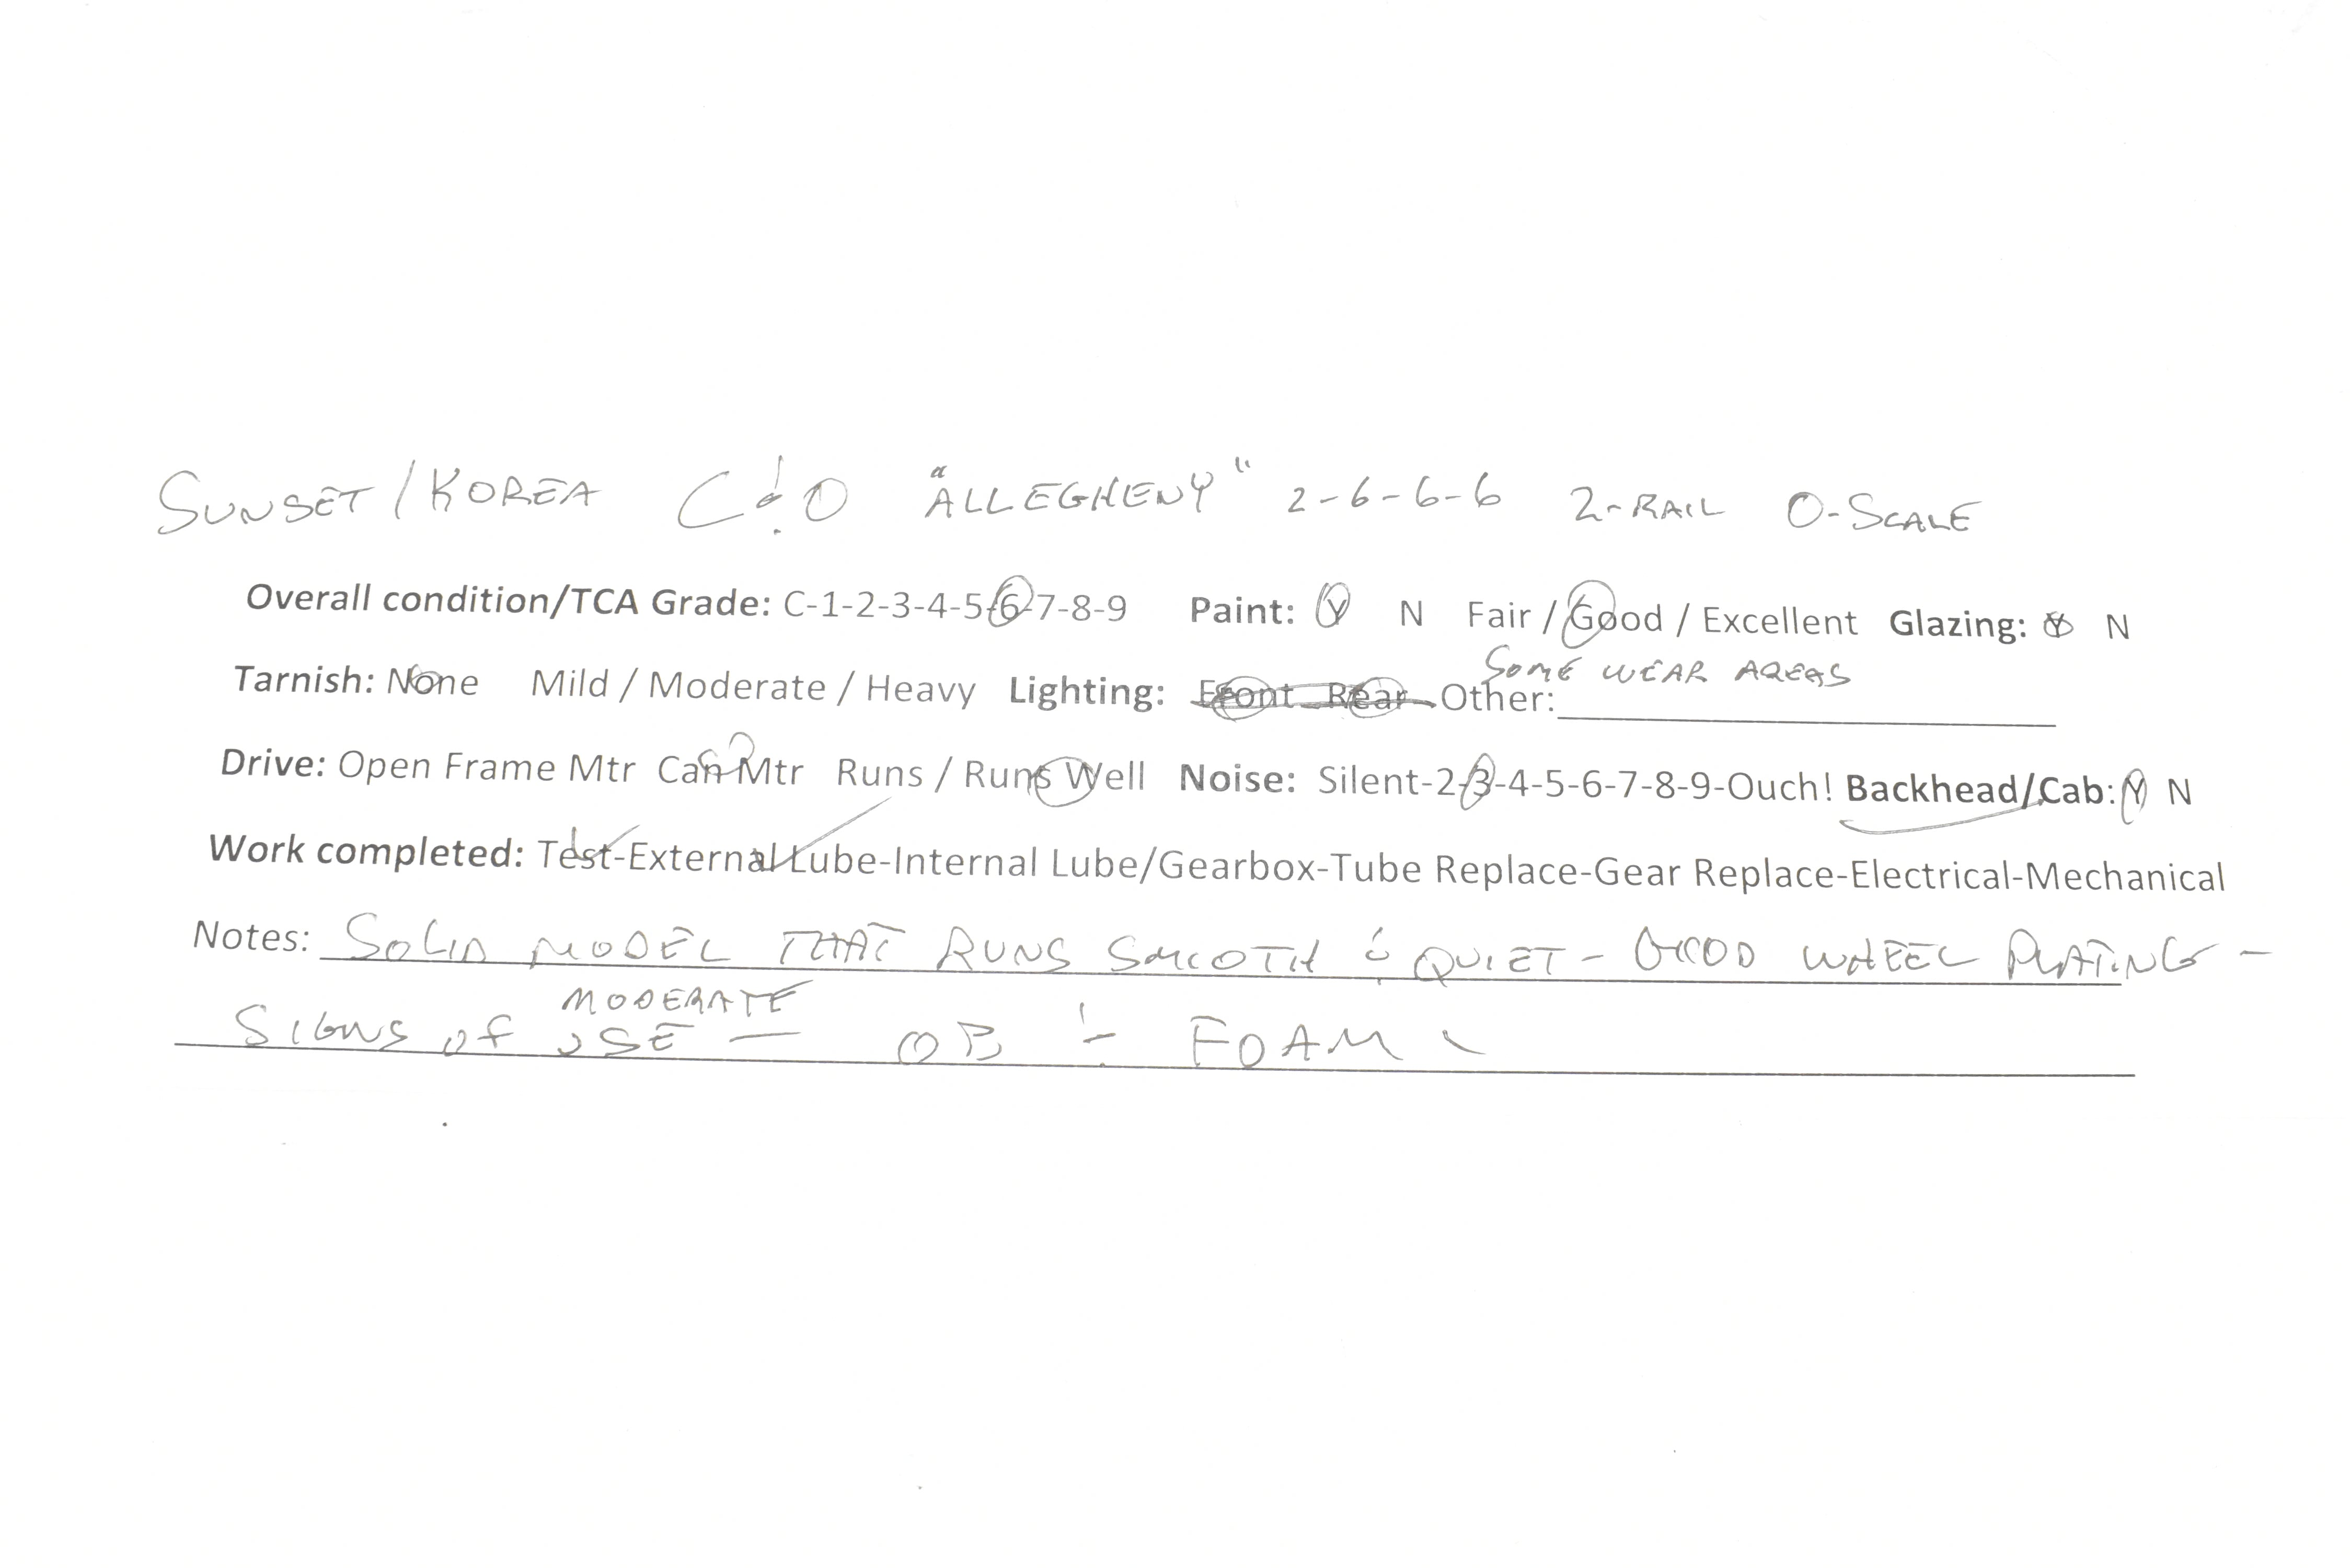 SUNSET/KOREA C&O "ALLEGHENY" 2-6-6-6 2-RAIL O-SCALE
Overall condition/TCA Grade: C-1-2-3-4-5-6-7-8-9 Paint: Y N Fair / Good / Excellent Glazing: Y N
SOME WEAR AREAS
Tarnish: None Mild / Moderate / Heavy Lighting: Front Rear Other:
Drive: Open Frame Mtr Can Mtr Runs / Runs Well Noise: Silent-2-3-4-5-6-7-8-9-Ouch! Backhead/Cab: Y N
Work completed: Test-External Lube-Internal Lube/Gearbox-Tube Replace-Gear Replace-Electrical-Mechanical
Notes: SOLID MODEL THAT RUNS SMOOTH & QUIET - GOOD WHEEL PLATING -
MODERATE
SIGNS OF USE - OB & FOAM